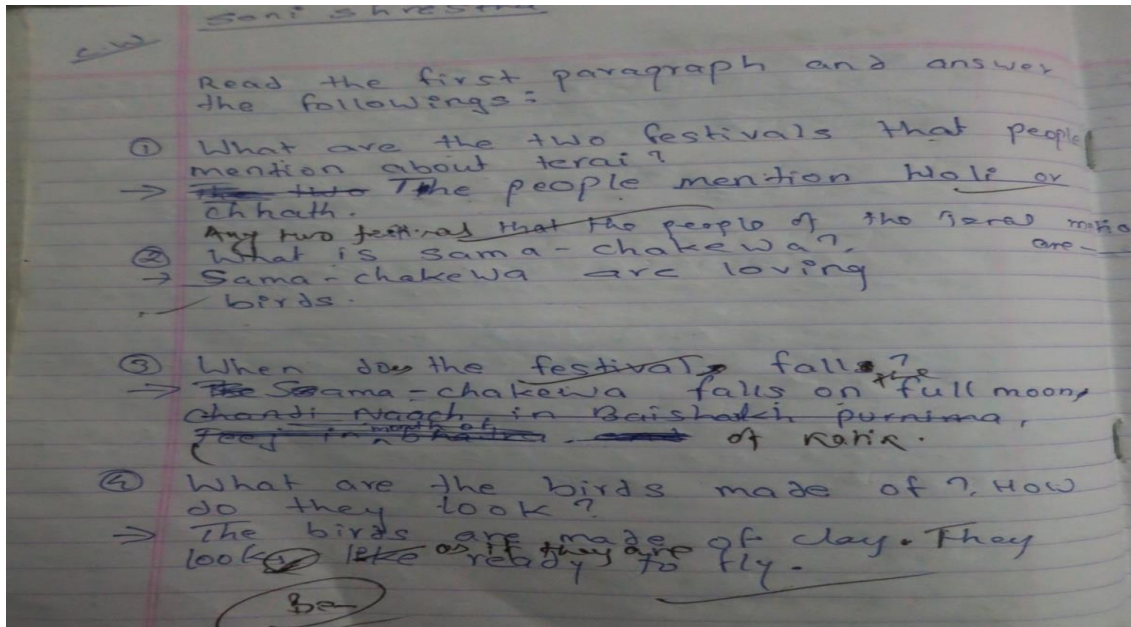 Soni Shrestha
C.W
Read the first paragraph and answer
the followings:
① What are the two festivals that people
mention about terai?
→ The people mention Holi or
chhath.
Any two festival that the people of the Terai
are
② What is sama-chakewa?
→ Sama-chakewa are loving
birds.
③ When does the festival falls?
→ Sama-chakewa falls on the full moon,
chandi Naach in Baishakh purnima,
Teej in month of Bhadra. of Katik.
④ What are the birds made of? How
do they look?
→ The birds are made of clay. They
look like as if they are ready to fly.